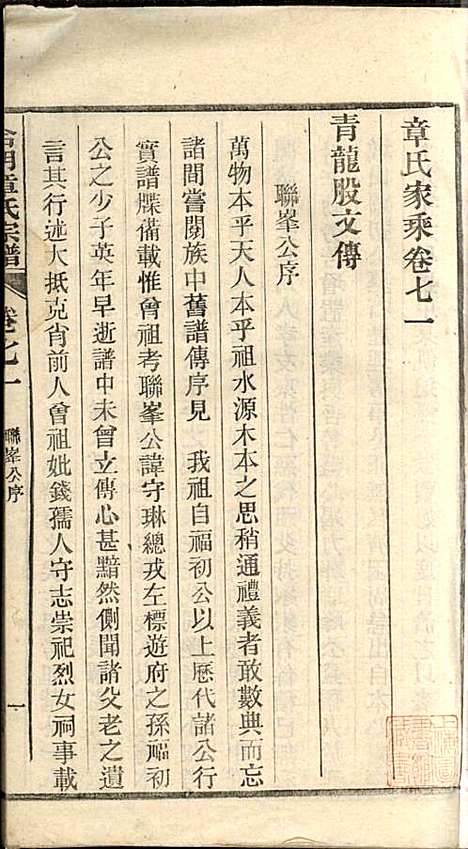 章氏家乘卷七一
青龍股文傳
聯峯公序
萬物本乎天人本乎祖水源木本之思稍通禮義者敢數典而忘
諸間嘗閱族中舊譜傳序見　我祖自福初公以上歷代諸公行
實譜牒備載惟曾祖考聯峯公諱守琳總戎左標遊府之孫福初
公之少子英年早逝譜中未曾立傳心甚黯然側聞諸父老之遺
言其行述大抵克肖前人曾祖妣錢孺人守志崇祀烈女祠事載
章氏宗譜
卷七一
聯峯公序
一